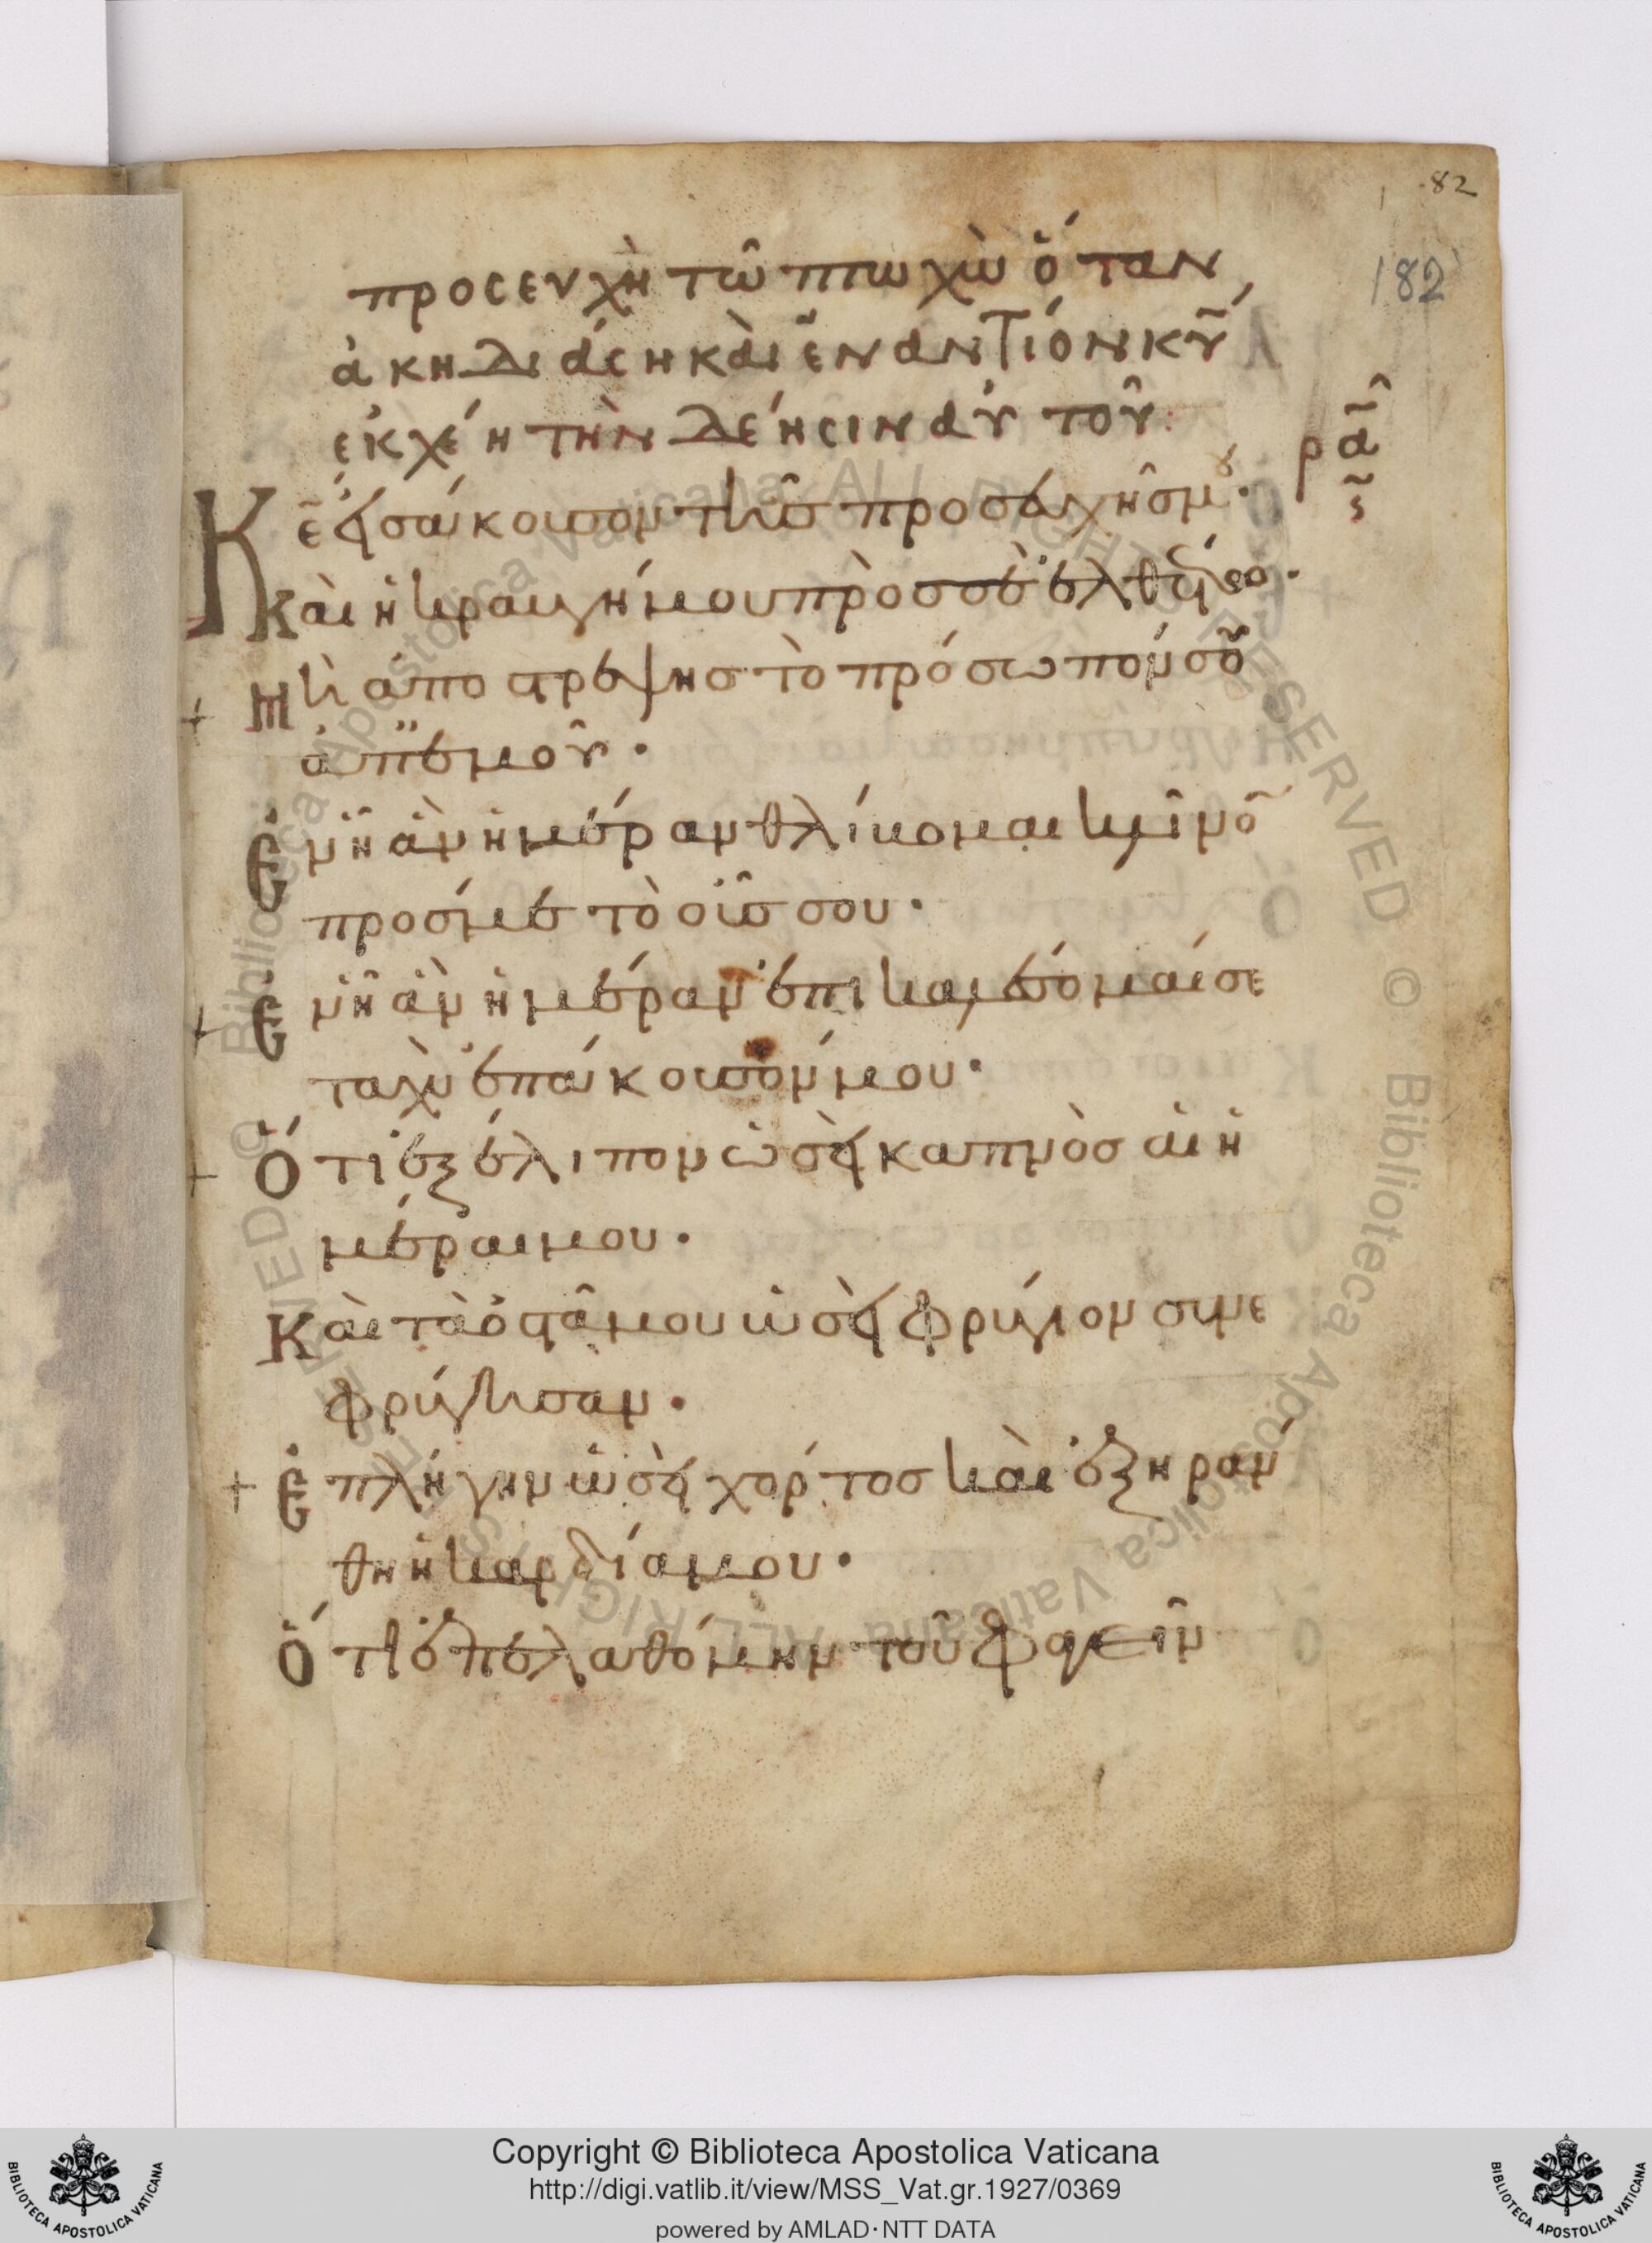 82
182
προσευχὴ τῶ πτωχὼ ὅταν
ἀκηδιάση καὶ ἔναντίον κῦ
ἐκχέη τὴν δέησιν ἀυτοῦ:
ρᾶ
ς
Κε εἰσάκουσον τῆς προσευχῆς μου·
Καὶ ἡ κραυγή μου πρὸς σὲ ἐλθέτω·
μὴ ἀποστρέψης τὸ πρόσωπόν σοῦ
ἀπ ἐμοῦ·
Ἐν ἧ ἂν ἡμέραν θλίβομαι κλῖνο
πρός με τὸ οὖς σου·
Ἐν ἧ ἂν ἡμέραν ἐπικαλέσομαί σε
ταχὺ ἐπάκουσόν μου·
Ὅτι ἐξέλιπον ὡσεὶ καπνὸς αἱ ἡ
μέραι μου·
Καὶ τὰ ὀστᾶ μου ὡσεὶ φρύγιον συνε
φρύγησαν·
Ἐπλήγην ὡσεὶ χόρτος καὶ ἐξηραν
θη ἡ καρδία μου·
Ὅτι ἐπελαθόμην τοῦ φαγεῖν
Copyright © Biblioteca Apostolica Vaticana
http://digi.vatlib.it/view/MSS_Vat.gr.1927/0369
powered by AMLAD·NTT DATA
BIBLIOTECA APOSTOLICA VATICANA
BIBLIOTECA APOSTOLICA VATICANA